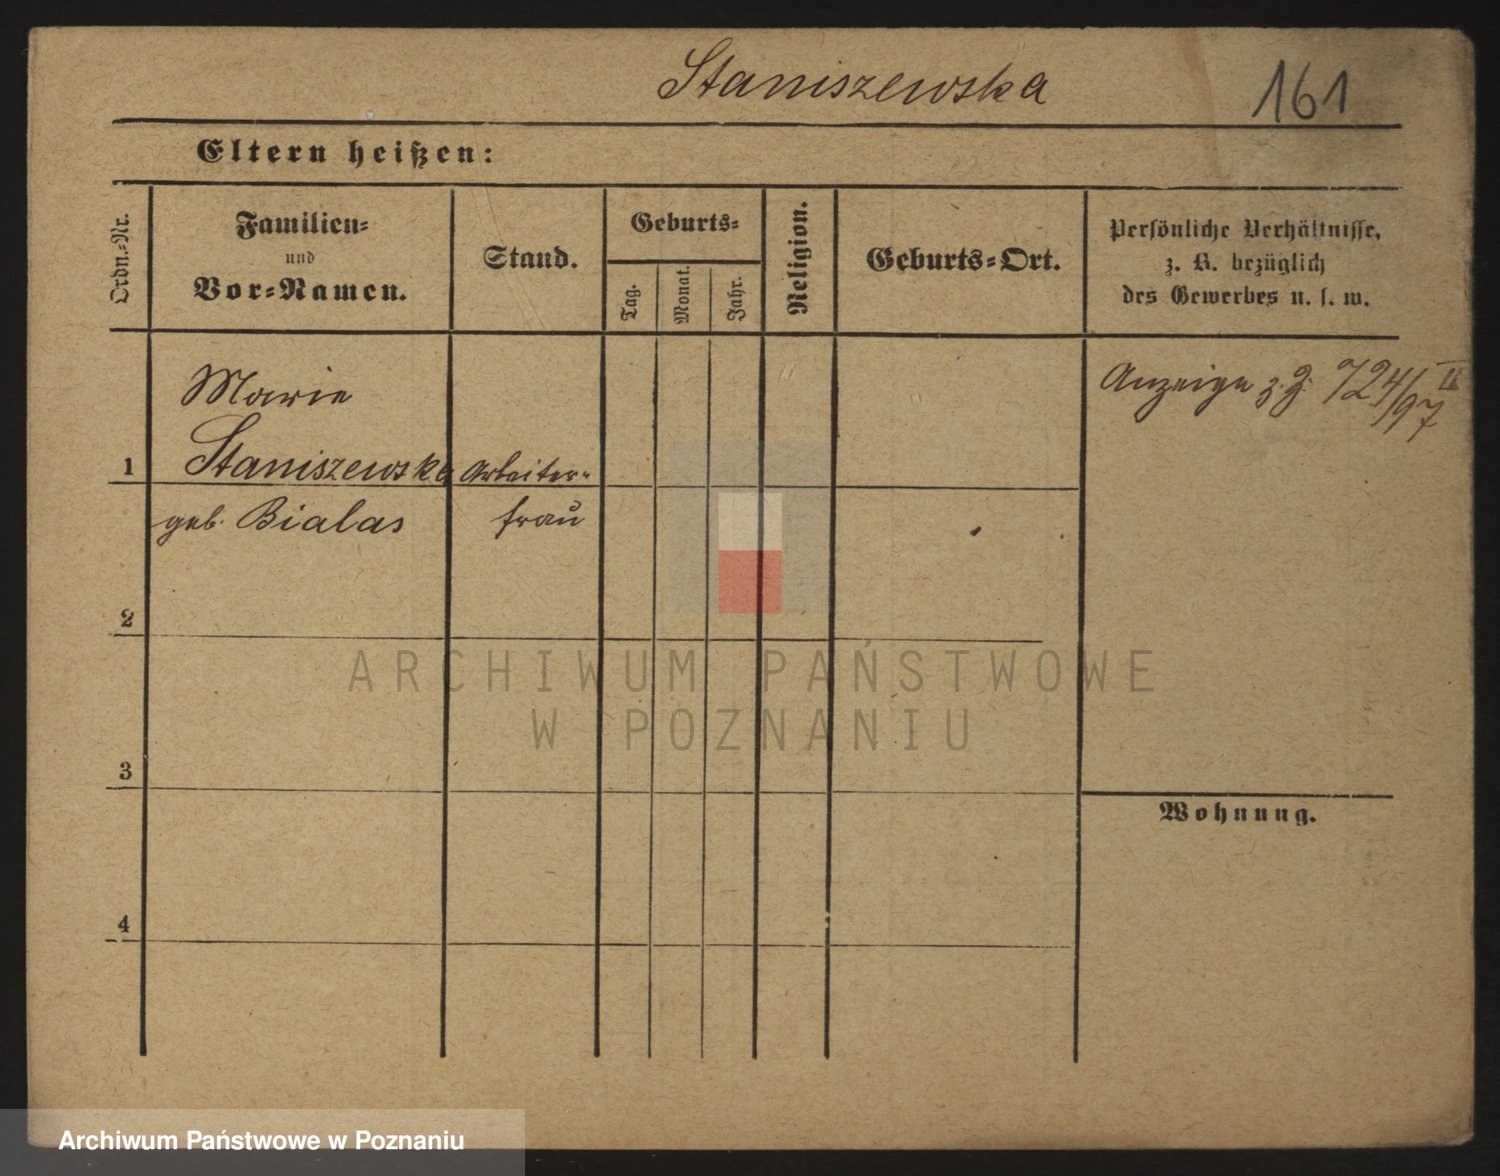 Staniszewska
161
Eltern heißen:
Ordn.-Nr.
Familien-
und
Vor-Namen.
Stand.
Geburts-
Tag.
Monat.
Jahr.
Religion.
Geburts-Ort.
Persönliche Verhältnisse,
z. B. bezüglich
des Gewerbes u. s. w.
Marie
1 Staniszewska Arbeiter-
geb. Bialas frau
Anzeige z. J. 724/97 II
2
3
4
Wohnung.
ARCHIWUM PAŃSTWOWE
W POZNANIU
Archiwum Państwowe w Poznaniu